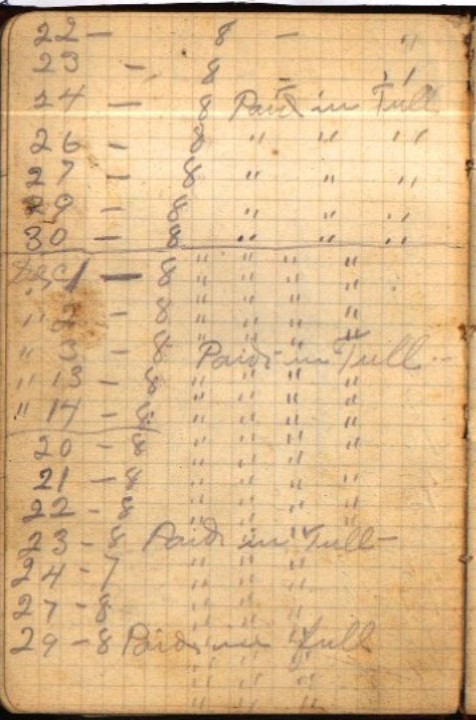 22 - 8 - "
23 - 8 - "
24 - 8 Paid in Full
26 - 8 " " "
27 - 8 " " "
29 - 8 " " "
30 - 8 " " "
Dec 1 - 8 " " " "
" 2 - 8 " " " "
" 3 - 8 Paid in Full --
" 13 - 8 " " " "
" 14 - 8 " " " "
20 - 8 " " " "
21 - 8 " " " "
22 - 8 " " " "
23 - 8 Paid in Full -
24 - 7 " " "
27 - 8 " " "
29 - 8 Paid in full
" " "
" " "